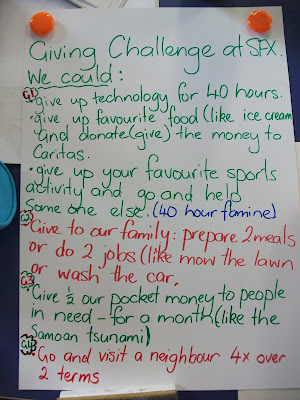 Giving Challenge at SFX.
We could:
G1
• give up technology for 40 hours.
• give up favourite food (like ice cream
and donate (give) the money to
Caritas.
• give up your favourite sports
activity and go and help
some one else. (40 hour famine)
G2
Give to our family: prepare 2 meals
or do 2 jobs (like mow the lawn
or wash the car.
G3
Give ½ our pocket money to people
in need – for a month (like the
Samoan tsunami)
G4
Go and visit a neighbour 4x over
2 terms